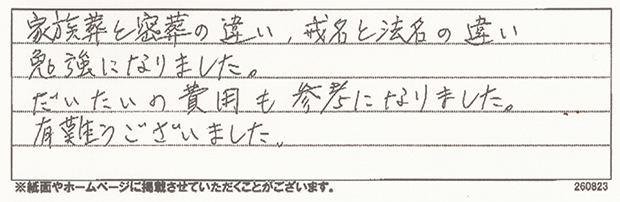 家族葬と密葬の違い、戒名と法名の違い
勉強になりました。
だいたいの費用も参考になりました。
有難うございました。
※紙面やホームページに掲載させていただくことがございます。 260823